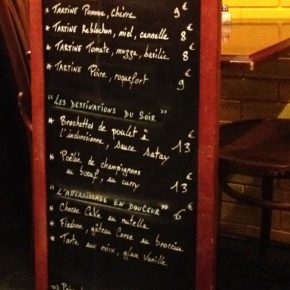 * TARTINE Pomme, Chèvre 9 €
* TARTINE Reblochon, miel, cannelle 8 €
* TARTINE Tomate, mozza, basilic 8 €
* TARTINE Poire, roquefort 9 €
"LES DESTINATIONS DU SOIR"
* Brochettes de poulet à
l'indonésienne, Sauce Satay 13 €
* Poêlée de champignons
au bœuf, au curry 13 €
"L'ATTERRISSAGE EN DOUCEUR" 6 €
* Cheese Cake au nutella
* Fiadone, gâteau Corse au brocciu
* Tarte aux noix, glace Vanille